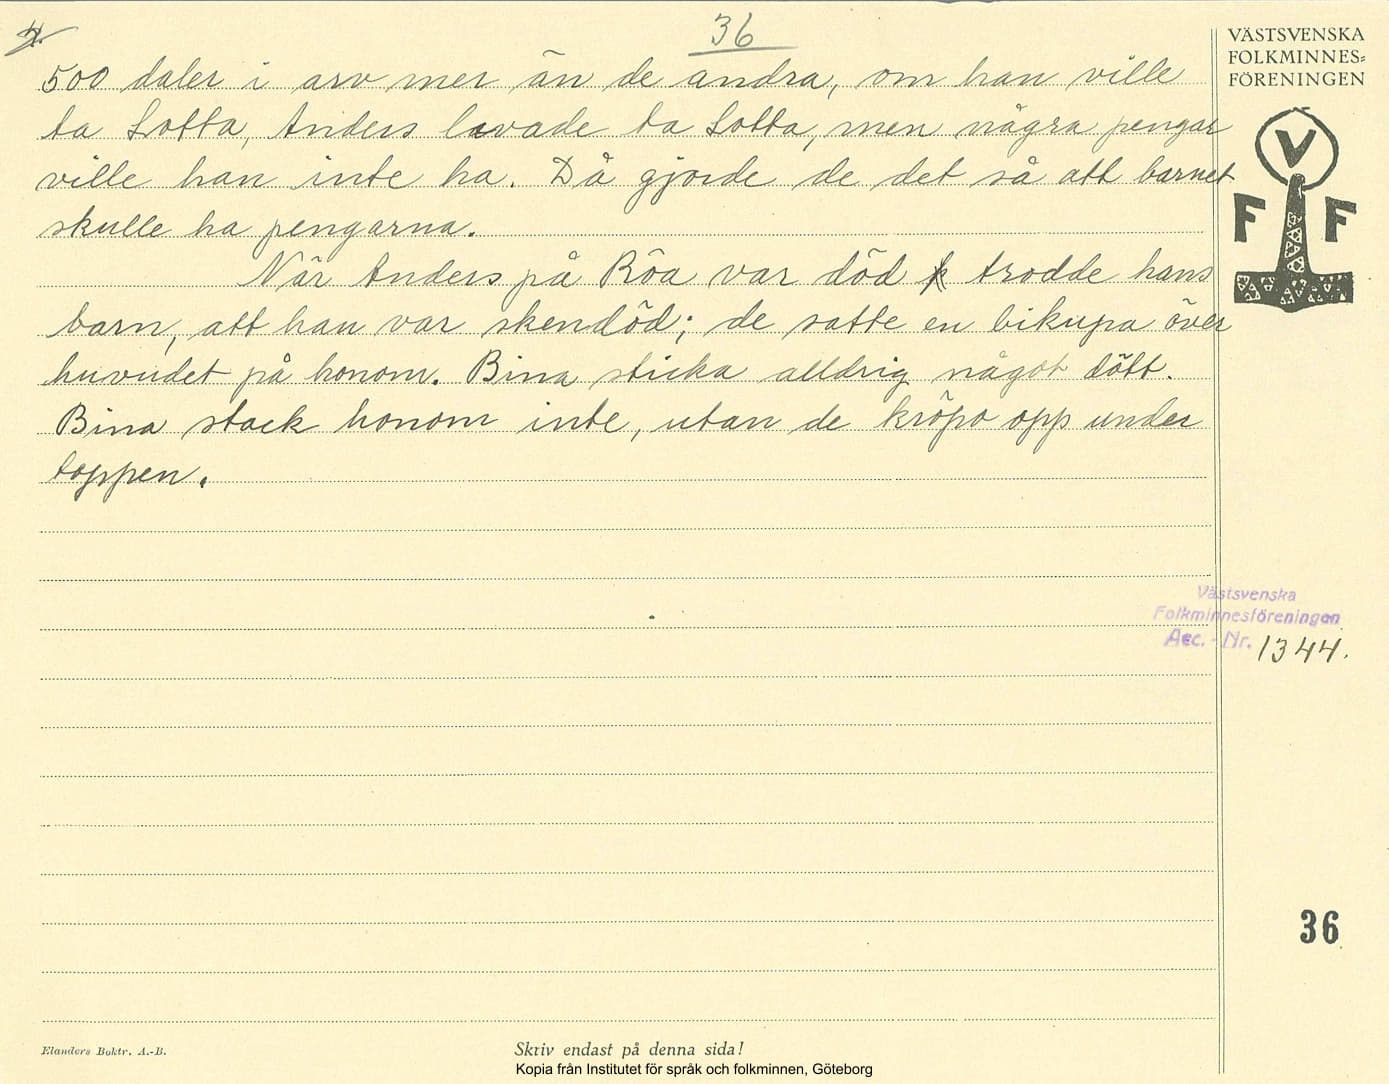 36
500 daler i arv mer än de andra, om han ville
ta Lotta, Anders lovade ta Lotta, men några pengar
ville han inte ha. Då gjorde de det så att barnet
skulle ha pengarna.
När Anders på Röa var död trodde hans
barn, att han var skendöd; de satte en bikupa över
huvudet på honom. Bina sticka alldrig något dött.
Bina stack honom inte, utan de kröpo opp under
toppen.
VÄSTSVENSKA
FOLKMINNES=
FÖRENINGEN
V
F F
Västsvenska
Folkminnesföreningen
Acc. - Nr. 1344.
36
Elanders Boktr. A.-B.
Skriv endast på denna sida!
Kopia från Institutet för språk och folkminnen, Göteborg